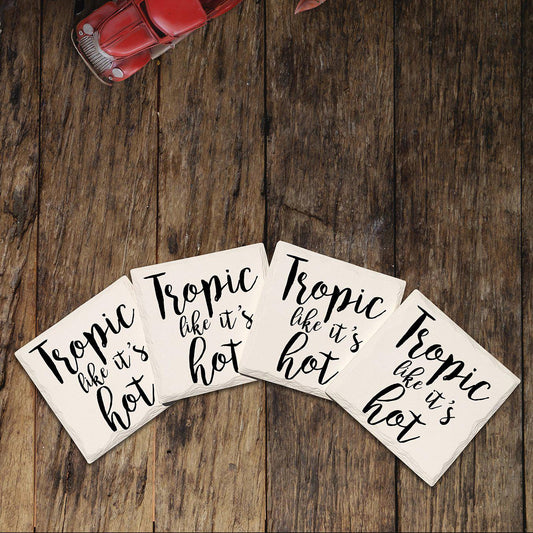 Tropic
like it's
hot
Tropic
like it's
hot
Tropic
like it's
hot
Tropic
like it's
hot